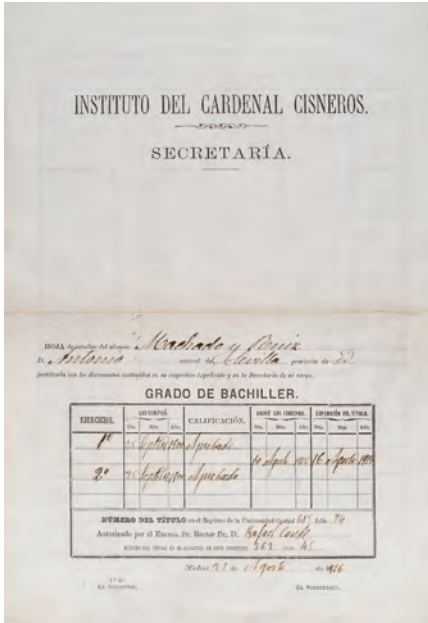 INSTITUTO DEL CARDENAL CISNEROS.
SECRETARÍA.
HOJA de estudios del alumno Machado y Ruiz
D. Antonio natural de Sevilla provincia de íd
justificada con los documentos contenidos en su respectivo expediente y en la Secretaría de mi cargo.
GRADO DE BACHILLER.
EJERCICIOS. LOS VERIFICÓ. CALIFICACIÓN. ABONÓ LOS DERECHOS. EXPEDICIÓN DEL TÍTULO.
Día. Mes. Año. Día. Mes. Año. Día. Mes. Año.
1º 25 Septbre 1900 Aprobado
10 Agosto 16 Agosto
2º 25 Septbre 1900 Aprobado
NÚMERO DEL TÍTULO en el Registro de la Universidad Central 685 folio 74
Autorizado por el Excmo. Sr. Rector D. D. Rafael
NÚMERO DEL TÍTULO EN EL REGISTRO DE ESTE INSTITUTO 362 FOLIO 45
Madrid 21 de Agosto de 1916
V.º B.º
EL DIRECTOR, EL SECRETARIO,